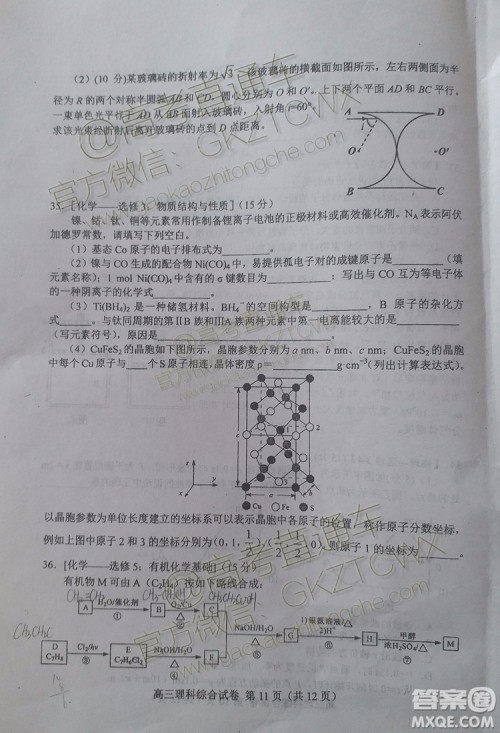 (2)(10 分)某玻璃砖的折射率为√3,该玻璃砖的横截面如图所示,左右两侧面为半
径为 R 的两个对称半圆弧 AB 和 CD,圆心分别为 O 和 O′,上下两个平面 AD 和 BC 平行,
一束单色光平行于 AD 从 AB 面射入玻璃砖,入射角 i=60°,
求该光束经折射后离开玻璃砖的点到 D 点距离。
A
D
i
O
O′
B
C
35. [化学——选修 3:物质结构与性质](15 分)
镍、钴、钛、铜等元素常用作制备锂离子电池的正极材料或高效催化剂。NA表示阿伏
加德罗常数,请填写下列空白。
(1)基态 Co 原子的电子排布式为
(2)镍与 CO 生成的配合物 Ni(CO)4中,易提供孤电子对的成键原子是 (填
元素名称);1 mol Ni(CO)4中含有的 σ 键数目为 ;写出与 CO 互为等电子体
的一种阴离子的化学式 。
(3)Ti(BH4)2 是一种储氢材料。BH4⁻ 的空间构型是 ,B 原子的杂化方
式 。与钛同周期的第ⅡB 族和ⅢA 族两种元素中第一电离能较大的是
(写元素符号),原因是 。
(4)CuFeS2 的晶胞如下图所示,晶胞参数分别为 a nm、b nm、c nm;CuFeS2 的晶胞
中每个 Cu 原子与 个 S 原子相连,晶体密度 ρ= g·cm⁻³(列出计算表达式)。
c
2
z
y
x
a
b
Cu Fe S
以晶胞参数为单位长度建立的坐标系可以表示晶胞中各原子的位置,称作原子分数坐
标,例如上图中原子 2 和 3 的坐标分别为(0,1,-1/2)、(-1/2,1/2,0),则原子 1 的坐标为 。
36. [化学——选修 5:有机化学基础](15 分)
有机物 M 可由 A(C3H6)按如下路线合成:
A H2O/催化剂 B O2/Cu C
D C7H8 Cl2/hν ③ E C7H6Cl2 NaOH/H2O ④
NaOH/H2O ⑤ G H 甲醇 浓H2SO4/△ ⑦ M
高三理科综合试卷 第 11 页(共 12 页)
@高考直通车
官方微信:GKZTCWX
www.gaokaozhitongche.com
答案圈
MXQE.COM